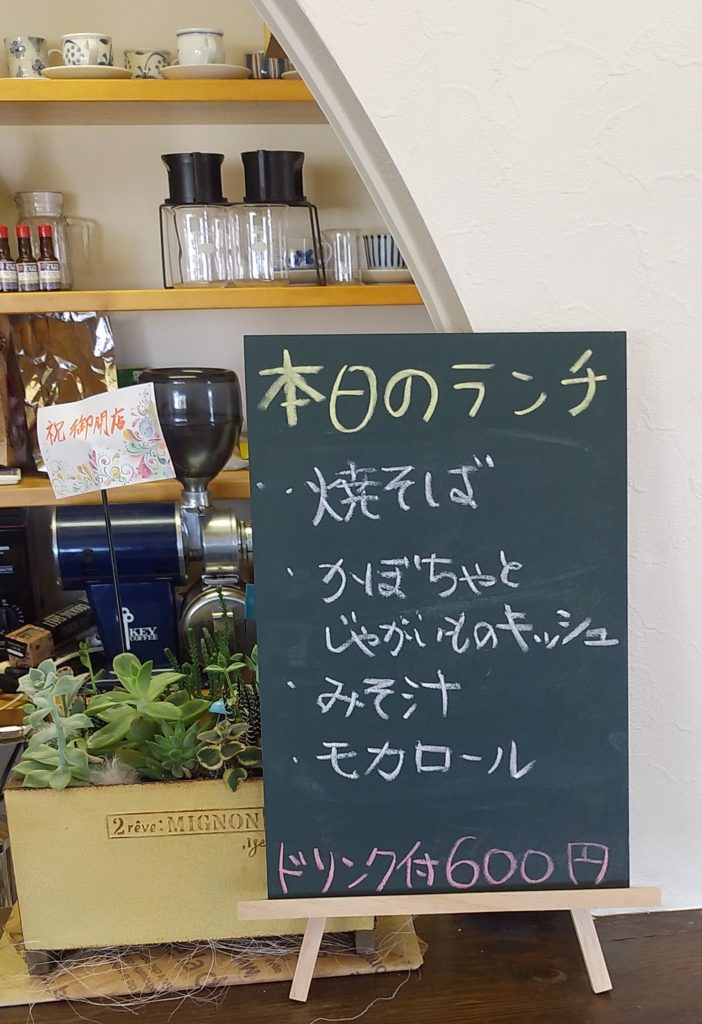 祝 御開店
本日のランチ
・焼そば
・かぼちゃと
じゃがいものキッシュ
・みそ汁
・モカロール
ドリンク付600円
KEY
COFFEE
2 rêve: MIGNON